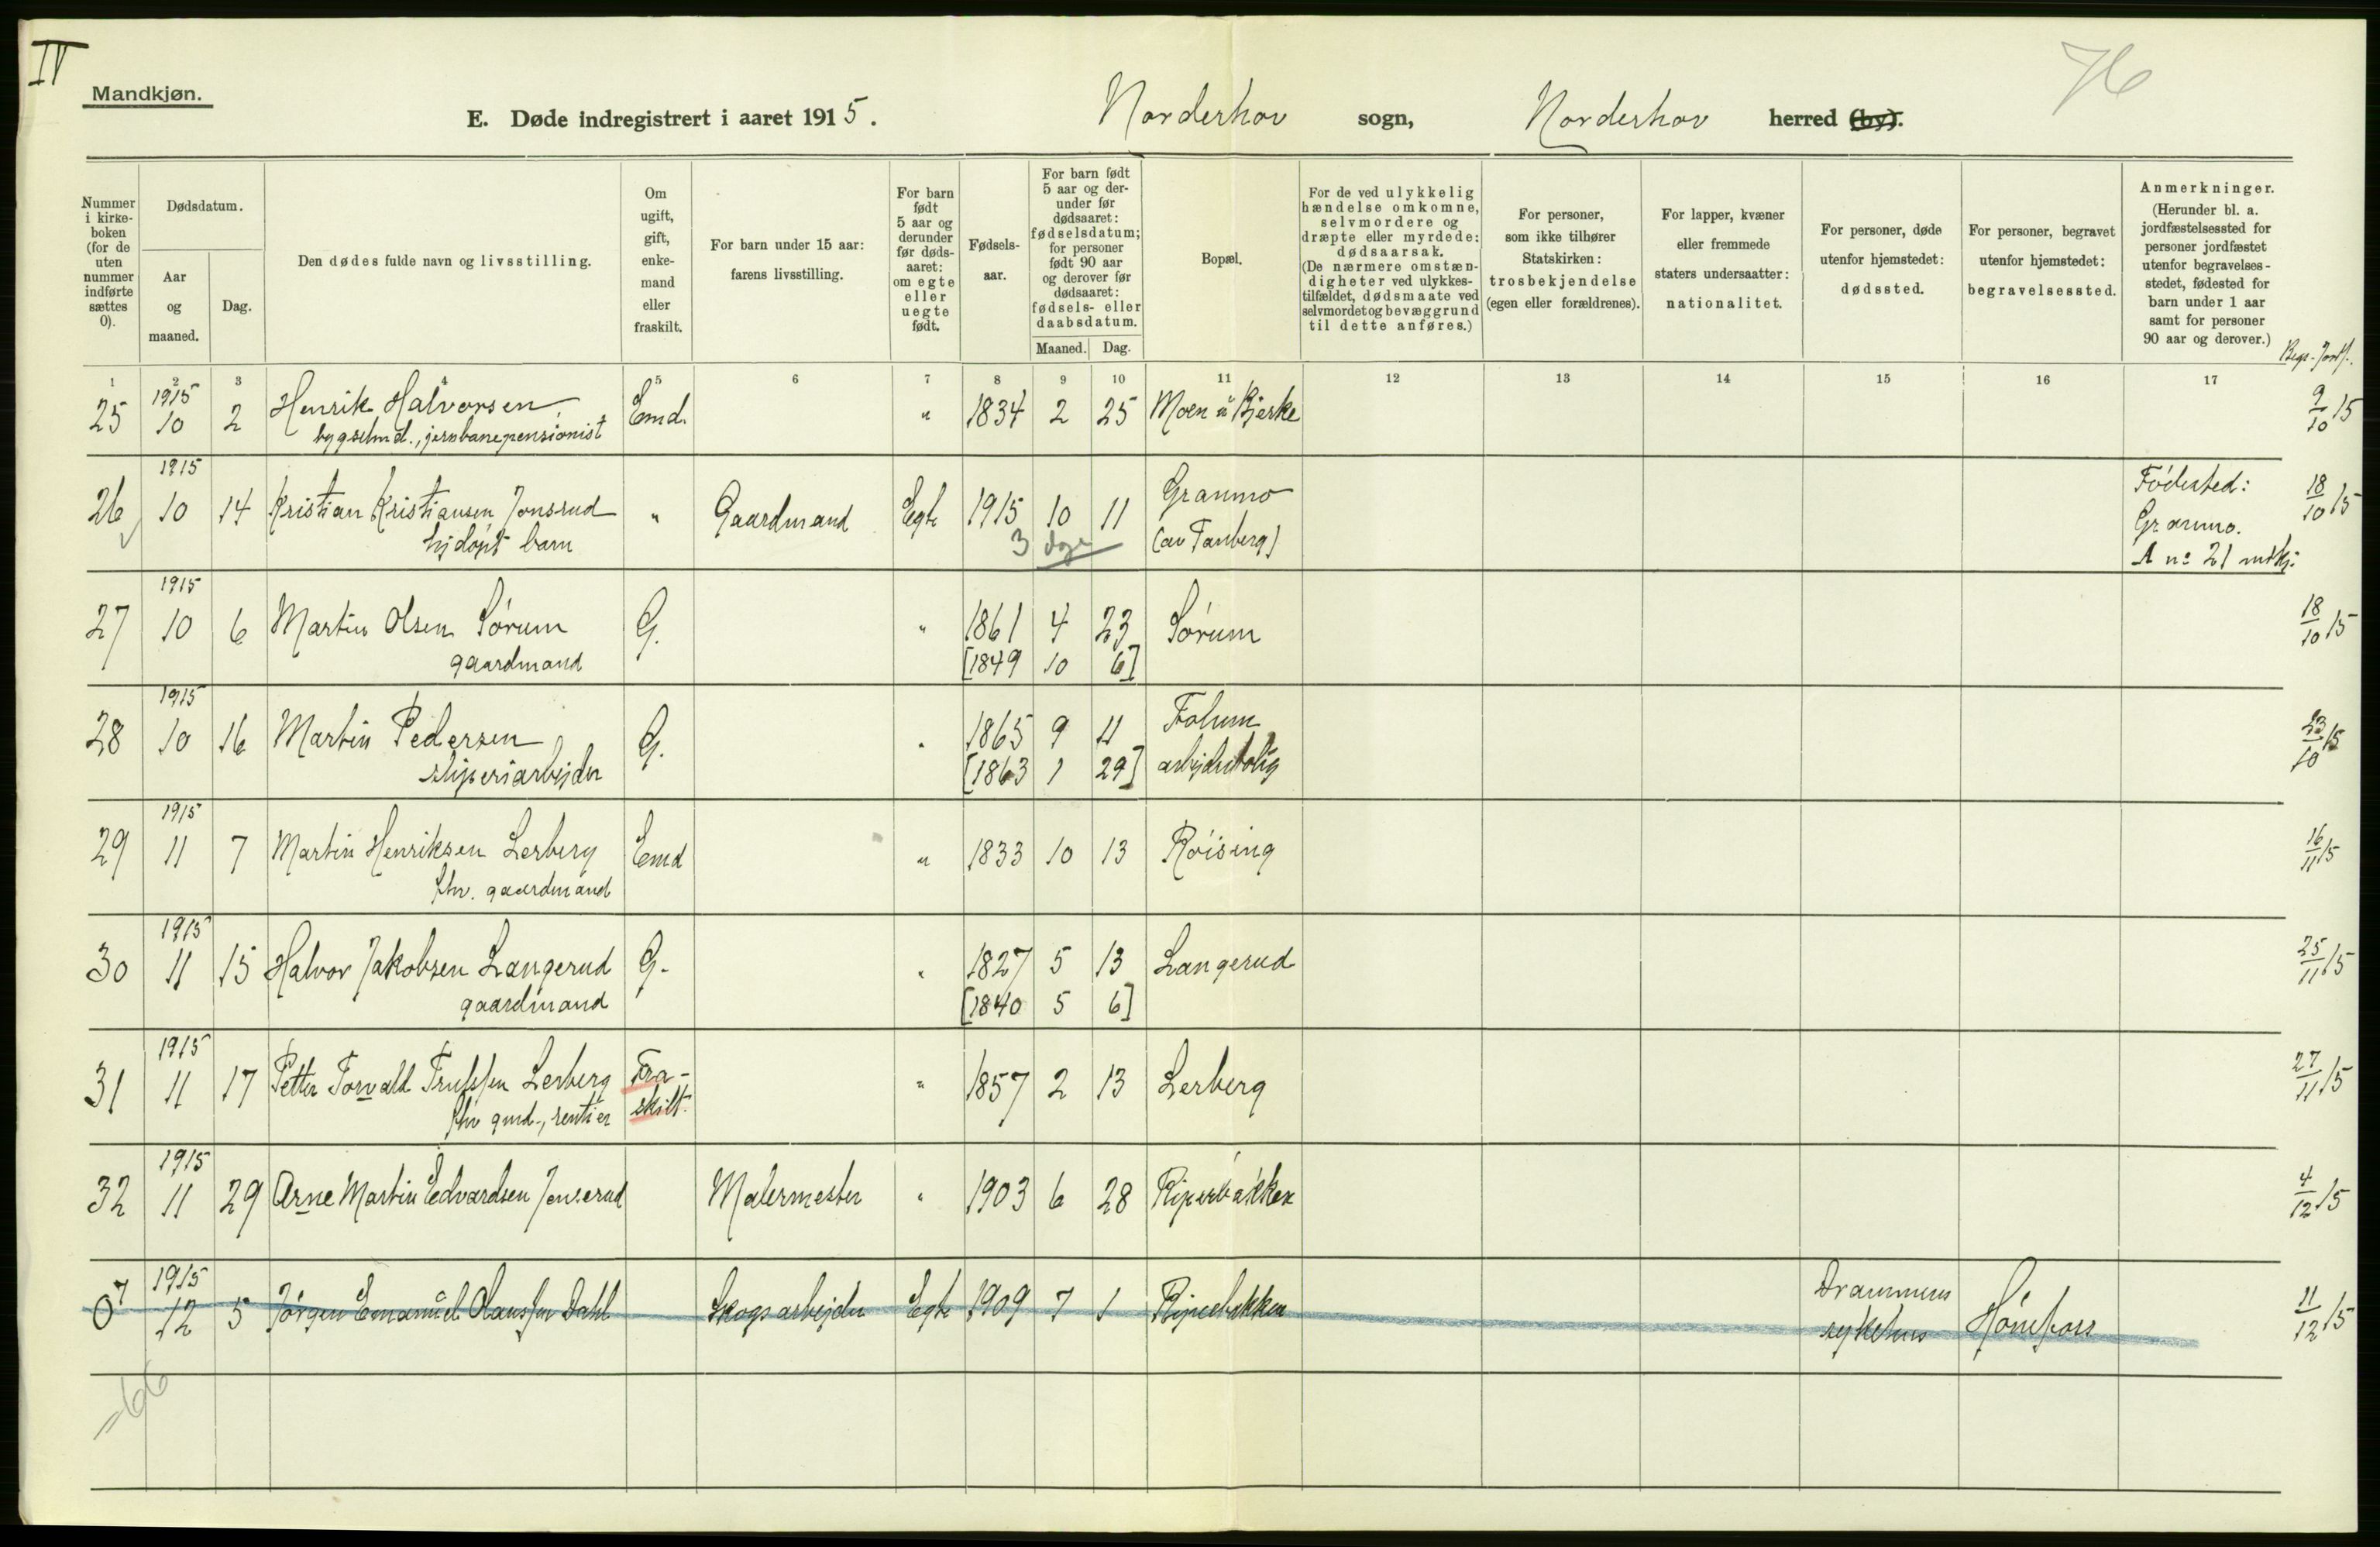 IV
76
Mandkjøn.
E. Døde indregistrert i aaret 1915. Norderhov sogn, Norderhov herred (by).
Nummer i kirke-boken (for de uten nummer indførte sættes 0).
Dødsdatum.
Aar og maaned.
Dag.
Den dødes fulde navn og livsstilling.
Om ugift, gift, enke-mand eller fraskilt.
For barn under 15 aar: farens livsstilling.
For barn født 5 aar og derunder før døds-aaret: om egte eller uegte født.
Fødsels-aar.
For barn født 5 aar og der-under før dødsaaret: fødselsdatum; for personer født 90 aar og derover før dødsaaret: fødsels- eller daabsdatum.
Maaned. Dag.
Bopæl.
For de ved ulykkelig hændelse omkomne, selvmordere og dræpte eller myrdede: dødsaarsak. (De nærmere omstæn-digheter ved ulykkes-tilfældet, dødsmaate ved selvmordet og bevæggrund til dette anføres.)
For personer, som ikke tilhører Statskirken: trosbekjendelse (egen eller forældrenes).
For lapper, kvæner eller fremmede staters undersaatter: nationalitet.
For personer, døde utenfor hjemstedet: dødssted.
For personer, begravet utenfor hjemstedet: begravelsessted.
Anmerkninger. (Herunder bl. a. jordfæstelsessted for personer jordfæstet utenfor begravelses-stedet, fødested for barn under 1 aar samt for personer 90 aar og derover.)
Begr. Jordf.
1 2 3 4 5 6 7 8 9 10 11 12 13 14 15 16 17
1915
25 10 2 Henrik Halvorsen Emd. " 1834 2 25 Moen u/ Bjerke 9/10 15
bygselmd., jernbanepensionist
1915
26 10 14 Kristian Kristiansen Jonsrud " Gaardmand Egte 1915 10 11 Granmo Fødested: 18/10 15
hjdøpt barn 3 dage (av Tanberg) Granmo.
A no 21 mdkj.
1915
27 10 6 Martin Olsen Sørum G. " 1861 4 23 Sørum 18/10 15
gaardmand [1849 10 6]
1915
28 10 16 Martin Pedersen G. " 1865 9 11 Follum 23/10 15
sliperiarbejder [1863 1 29] arbejderbolig
1915
29 11 7 Martin Henriksen Lerberg Emd " 1833 10 13 Røising 16/11 15
fhv. gaardmand
1915
30 11 15 Halvor Jakobsen Langerud G. " 1827 5 13 Langerud 25/11 15
gaardmand [1840 5 6]
1915
31 11 17 Petter Torvald Trulssen Lerberg Fra- " 1857 2 13 Lerberg 27/11 15
fhv gmd., rentier skilt.
1915
32 11 29 Arne Martin Edvardsen Jonserud Malermester " 1903 6 28 Riperbakken 4/12 15
1915
0 7 12 5 Jørgen Emanuel Claussen Dahl Skogsarbejder Egte 1909 7 1 Riperbakken Drammens sykehus Hønefoss 11/12 15
=66